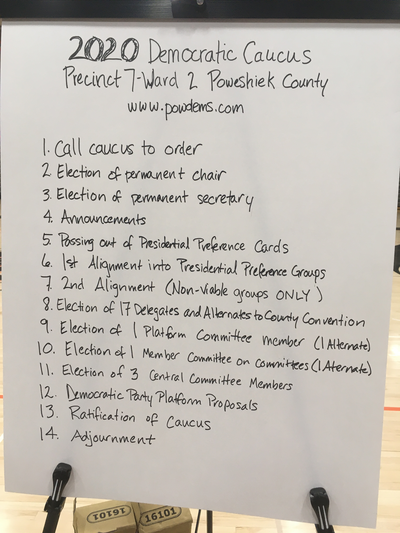 2020 Democratic Caucus
Precinct 7-Ward 2 Poweshiek County
www.powdems.com
1. Call caucus to order
2 Election of permanent chair
3. Election of permanent secretary
4. Announcements
5. Passing out of Presidential Preference Cards
6. 1st Alignment into Presidential Preference Groups
7. 2nd Alignment (Non-Viable groups ONLY)
8. Election of 17 Delegates and Alternates to County Convention
9. Election of 1 Platform Committee member (1 Alternate)
10. Election of 1 Member Committee on committees (1 Alternate)
11. Election of 3 Central Committee Members
12. Democratic Party Platform Proposals
13. Ratification of Caucus
14. Adjournment
16101
16101